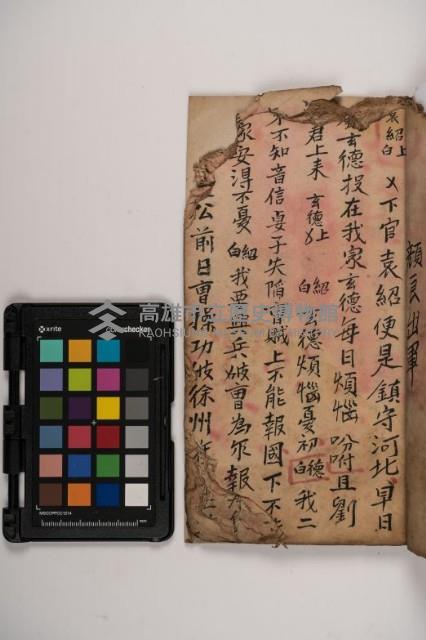 顏良出軍
袁紹上
白 乂下官袁紹便是鎮守河北早日
玄德投在我家玄德每日煩惱吩咐且劉
君上来 玄德上 乂 紹白 德煩惱憂初 德白 我二
不知音信妻子失陷曹賊上不能報國下不
家安得不憂 紹白 我要興兵破曹為尔報
公前日曹操功破徐州
高雄市立歷史博物館
KAOHSIUNG
x-rite
colorchecker
mm